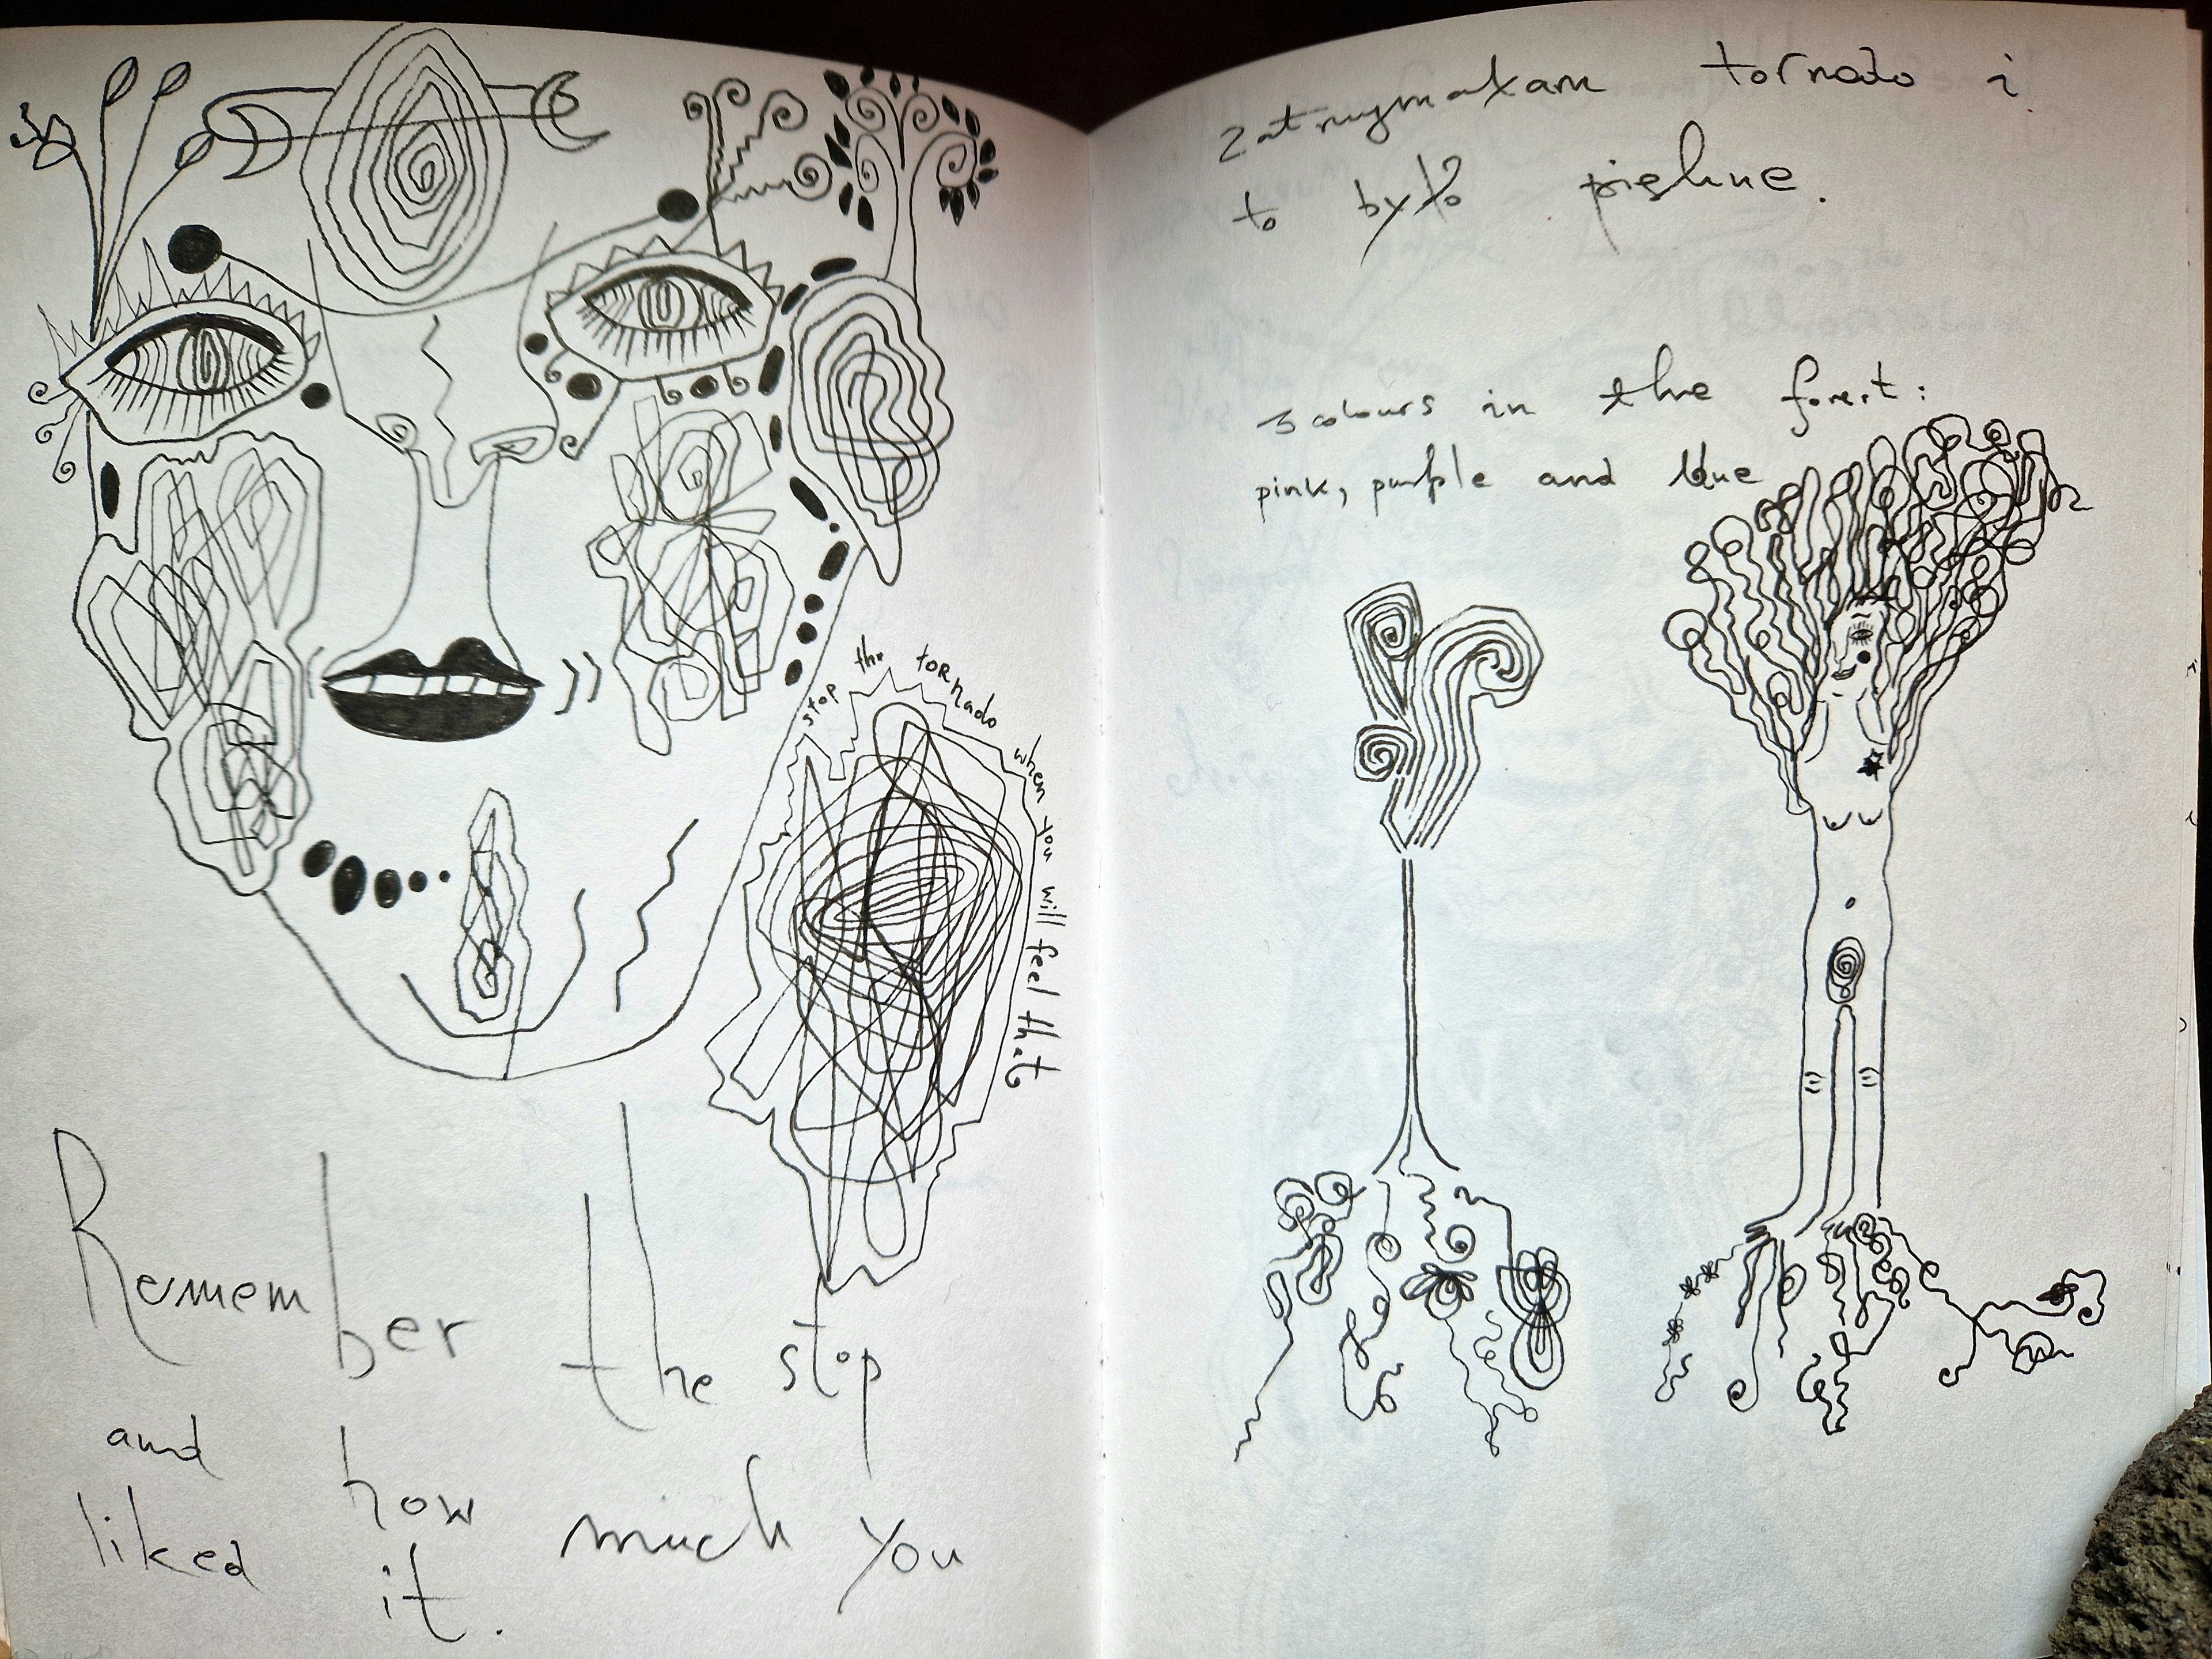 stop the tornado when you will feel that
Remember the stop
and how much you
liked it.
zatrzymałam tornado i
to było piękne.
3 colours in the forest:
pink, purple and blue